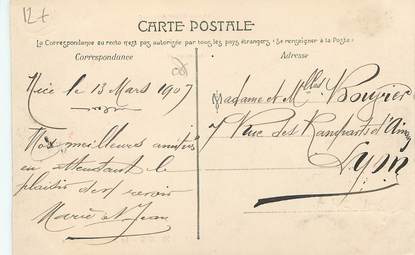 12 f
CARTE POSTALE
La Correspondance au recto n'est pas autorisée par tous les pays étrangers (Se renseigner à la Poste)
Correspondance
Adresse
Nice le 13 Mars 1907
Nos meilleurs amitiés
en attendant le
plaisir de
Marie et Jean
Madame et Mlles Bouvier
7 Rue des Remparts d'Ainay
Lyon